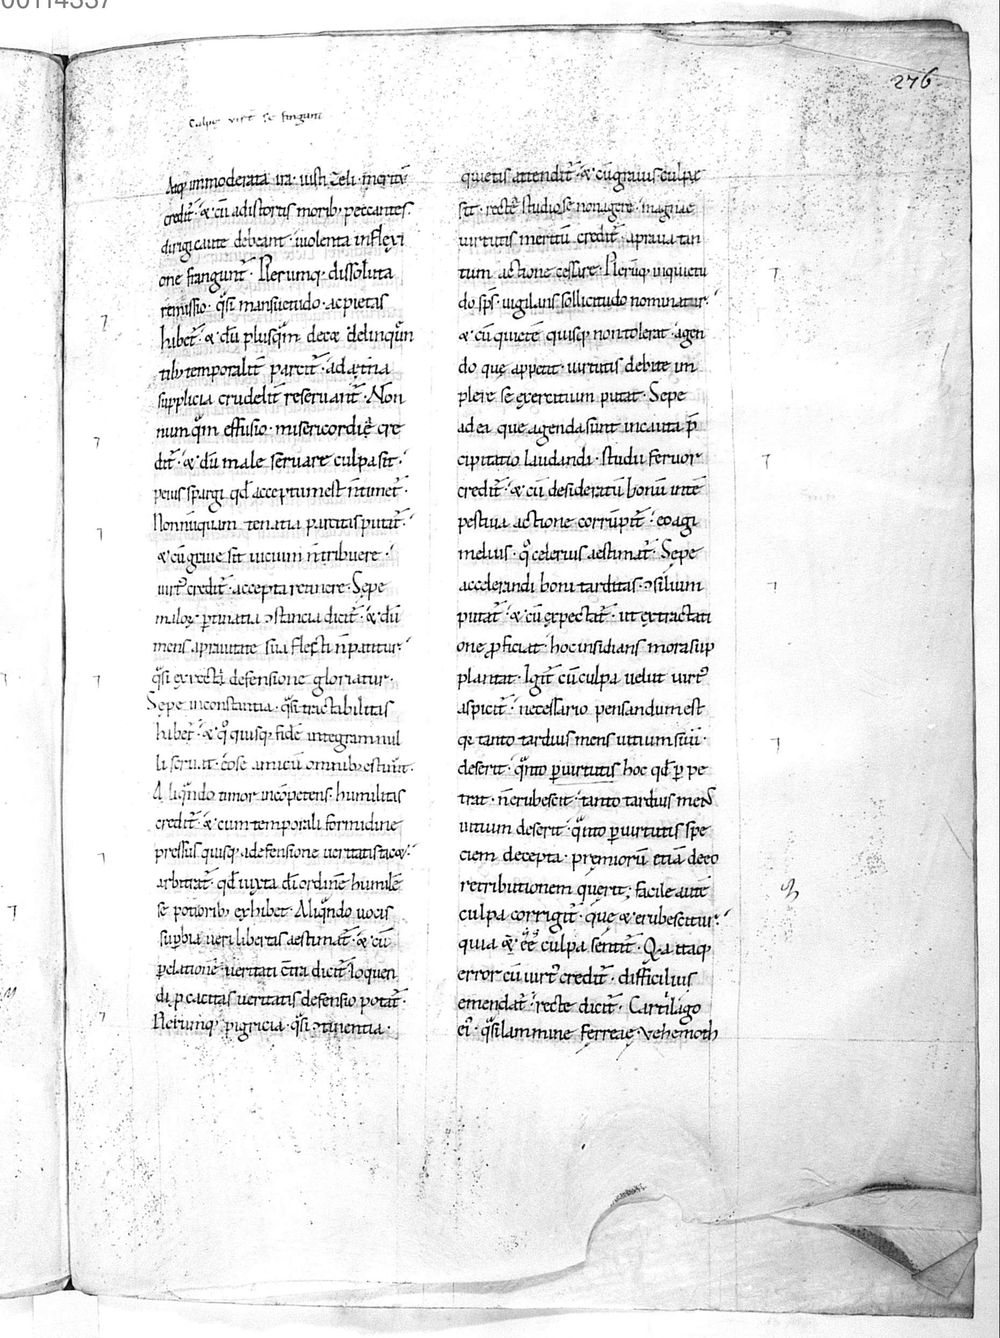 00114337
276
Culpę virt̄ se fingunt
Atq; immoderata ira · iusti zeli · meritū
credit̄ · & cū a distortis morib; peccantes ·
dirigi caute debeant · uiolenta inflexi
one frangunt · Plerumq; dissoluta
remissio · q̄si mansuetudo · ac pietas
habet̄ · & dū plusq̄m decæ delinquen
tib; temporalit̄ parcit̄ · ad æt̄na
supplicia crudelit̄ reseruant̄ · Non
numq̄m effusio · misericordię cre
dit̄ · & dū male seruare culpa sit ·
peius spargi qd̄ acceptum est n̄ timet̄ ·
Nonnūquam tenatia parcitas putat̄ ·
& cū graue sit uicium n̄ tribuere ·
uirt᷒ credit̄ · accepta retinere · Sepe
maloꝝ p̱tinatia ɔstancia dicit̄ · & dū
mens a prauitate sua flecti n̄ patitur ·
q̄si ex recti defensione gloriatur ·
Sepe inconstantia · q̄si tractabilitas
habet̄ · & qͦ quisq; fidē integram nul
li seruat · eo se amicū omnib; estimat ·
Aliq̄ndo timor incōpetens · humilitas
credit̄ · & cum temporali formidine
pressus quisq; a defensione ueritatis tacet ·
arbitrat̄ · qd̄ iuxta dī ordinē humilē
se potiorib; exhibet · Aliq̄ndo uocis
sup̱bia ueri libertas aestimat̄ · & cū
p̱ elationē ueritati c̄tra dicit̄ · loquen
di p̱cacitas ueritatis defensio potat̄ ·
Plerumq; pigricia · q̄si ɔtinentia ·
quietis attendit̄ · & cū grauis culpę
sit · rectę studiose non agere · magnae
uirtutis meritū credit̄ · a praua tan
tum actione cessare · Plerūq; inquietu
do sp̄s · uigilans sollicitudo nominatur ·
& cū quietē quisq; non tolerat · agen
do quę appetit · uirtutis debitę im
plere se exercitium putat · Sepe
ad ea que agenda sunt incauta p̄
cipitatio laudandi · studii feruor
credit̄ · & cū desideratū bonū intē
pestiua actione corrūpit̄ · eo agi
melius · qͦ celerius aestimat̄ · Sepe
accelerandi boni tarditas · ɔsilium
putat̄ · & cū expectat̄ · ut ex tractati
one ꝓficiat · hoc insidians mora sup
plantat · Igit̄ cū culpa uelut uirt᷒
aspicit̄ · necessario pensandum est
qꝫ tanto tardius mens uitium suū ·
deserit · q̄nto p̱ uirtutis hoc qd̄ p̱pe
trat · n̄ erubescit · tanto tardius mens
uitium deserit · q̄nto p̱ uirtutis spe
ciem decepta · premiorū etiā deeo
retributionem querit ; facile autē
culpa corrigit̄ · que & erubescitur ·
quia & ēē culpa sentit̄ · Qa itaq;
error cū uirt᷒ credit̄ · difficilius
emendat̄ · recte dicit̄ · Cartilago
ei᷒ · q̄si lammine ferreae · Vehemoth